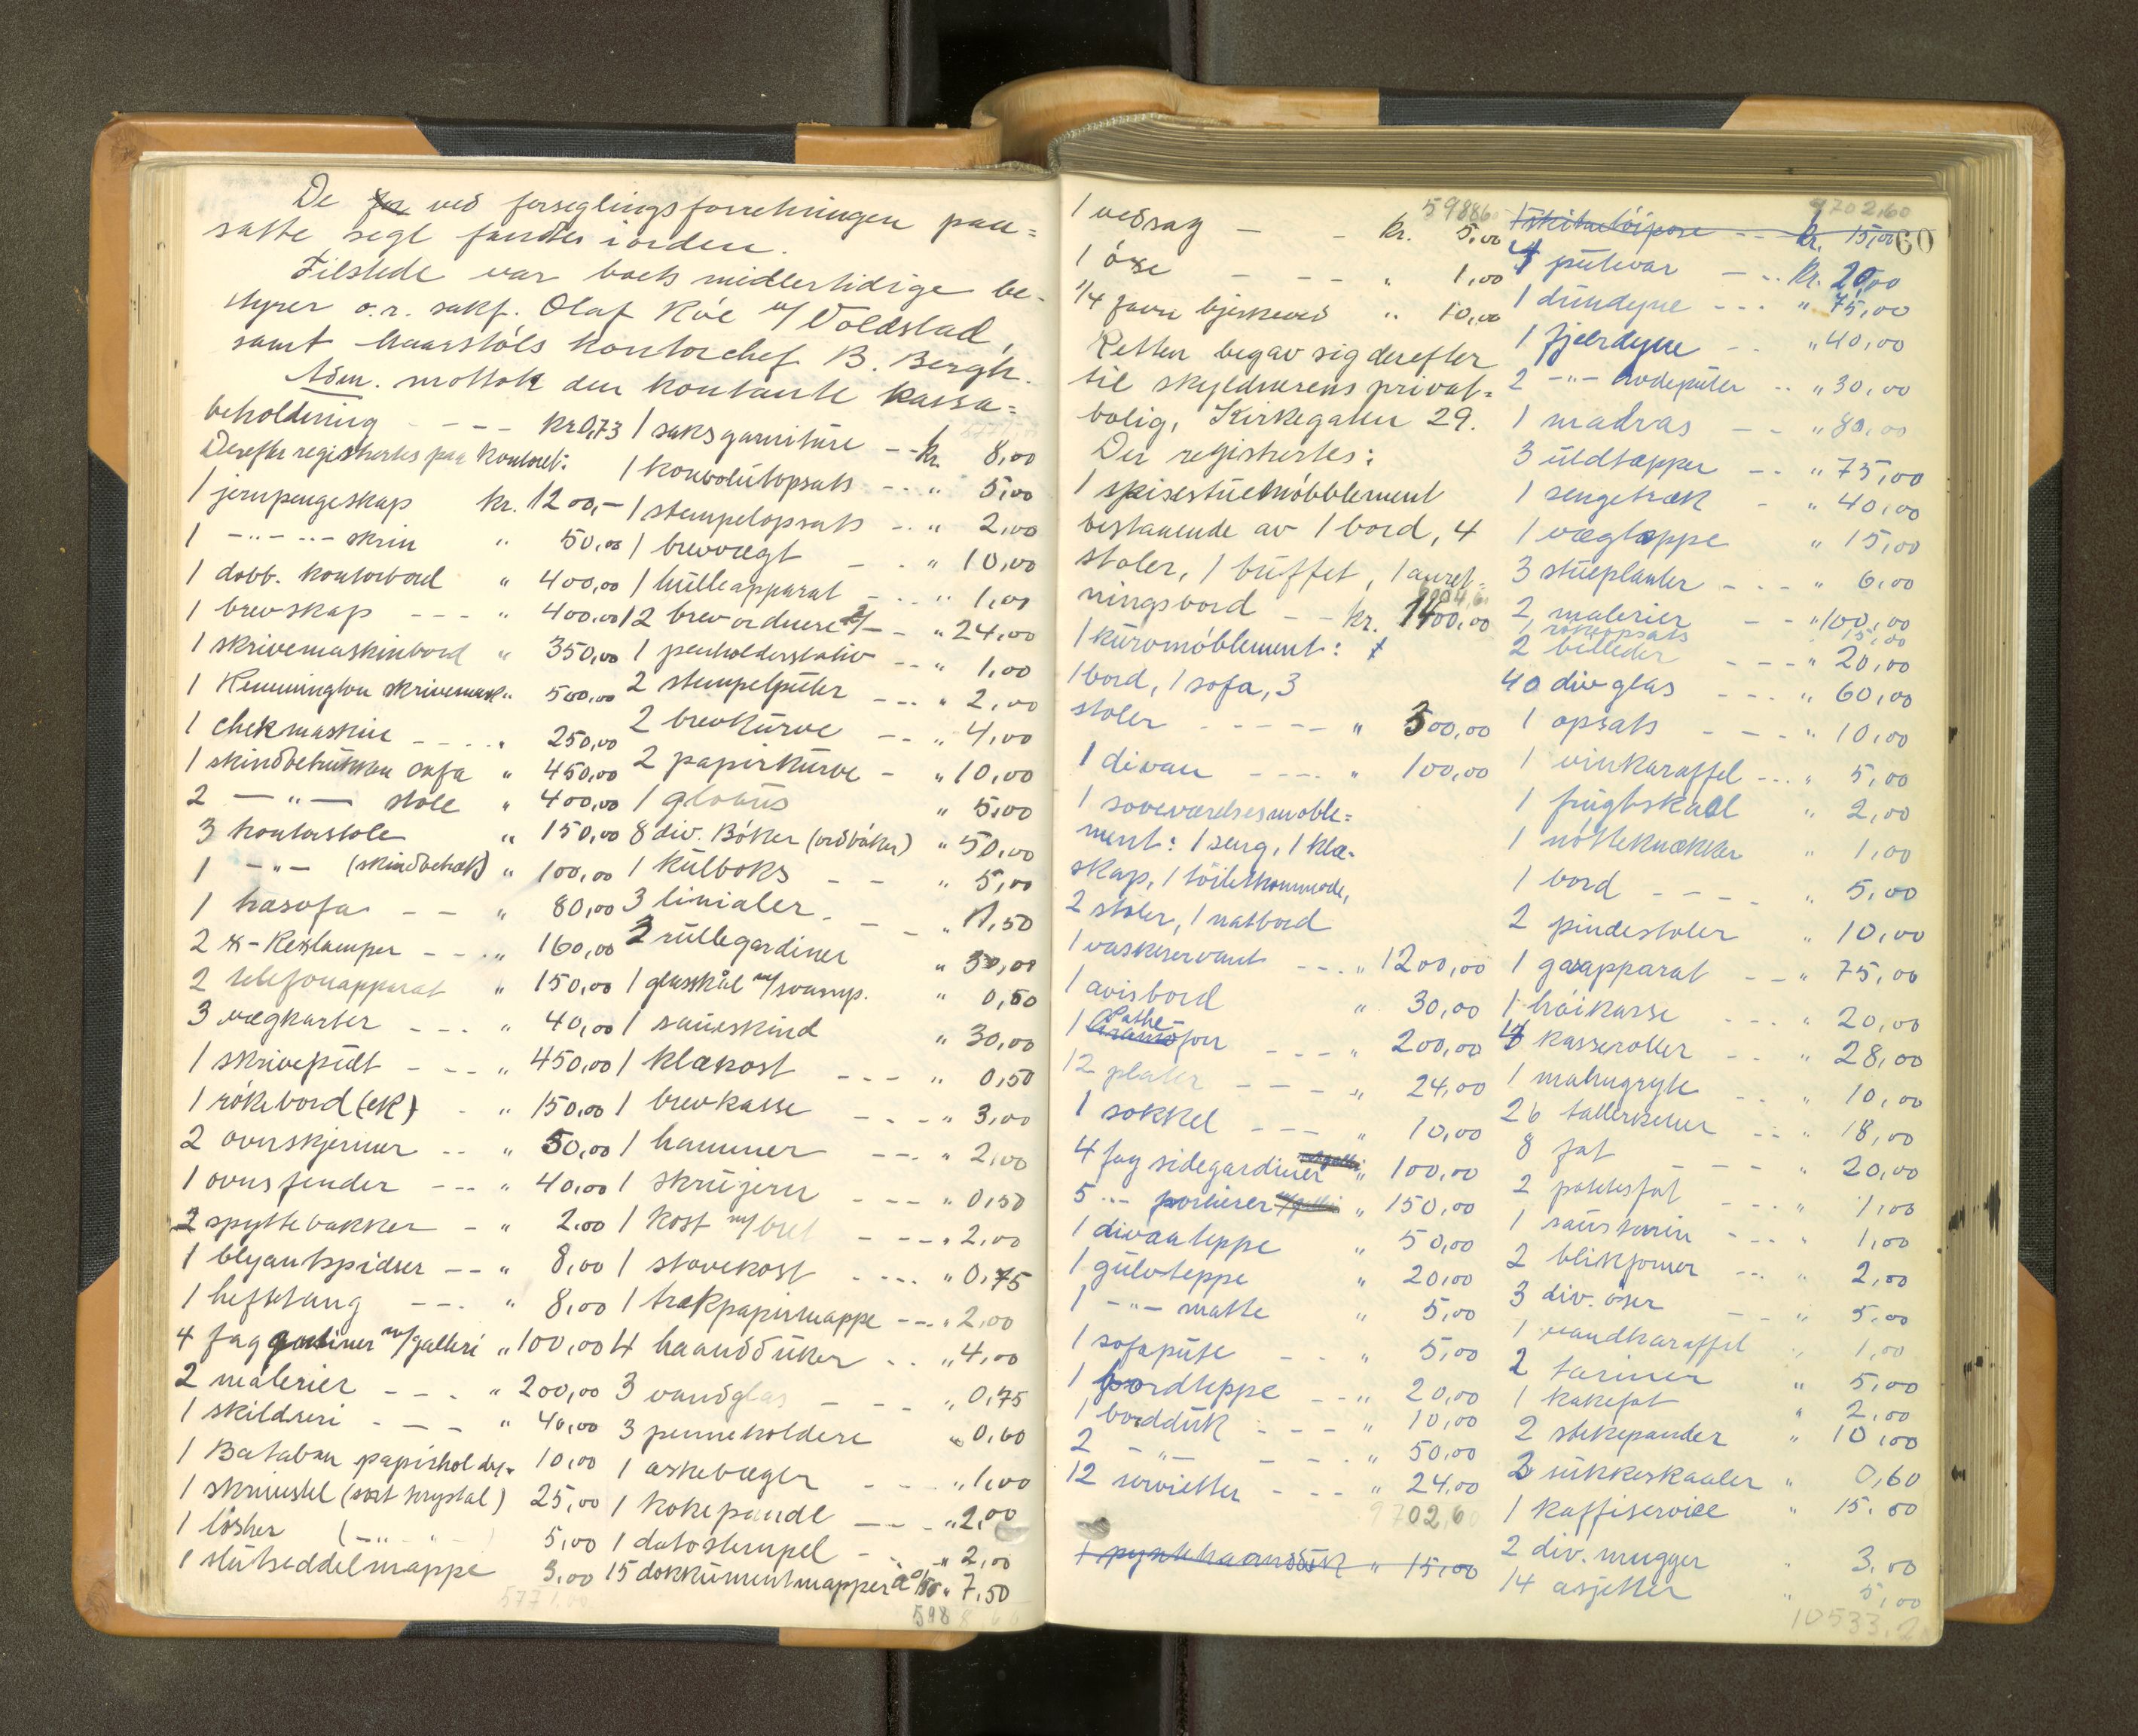 De for ved forseglingsforretningen paa=
satte segl fandtes i orden.
Tilstede var boets midlertidige be-
styrer o.r. sakf. Olaf Röe v/ Voldstad,
samt Maarstöls kontorchef B. Bergh.
Adm. mottok den kontante kassa=
beholdning - - - - kr 0,73
Derefter registrertes paa kontoret:
1 jernpengeskap kr. 1200,-
1 -"- -"- skrin " 50,00
1 dobb. kontorbord " 400,00
1 brevskap - - - " 400,00
1 skrivemaskinbord " 350,00
1 Remmington skrivemask. " 500,00
1 chekmaskin - - - - " 250,00
1 skindbetrukken sofa " 450,00
2 -"- stole " 400,00
3 kontorstole " 150,00
1 -"- (skindbetræk) " 100,00
1 hasofa - - " 80,00
2 lamper - - - " 160,00
2 telefonapparat " 150,00
3 vægkarter - - - " 40,00
1 skrivepult - - - " 450,00
1 rökebord (ek) - " 150,00
2 ovnskjermer - - " 50,00
1 ovnsfender - - - " 40,00
2 spyttebakker - " 2.00
1 blyantspidser - - " 8,00
1 heftetang - - - " 8,00
4 fag gardiner m/galleri " 100,00
2 malerier - - - " 200,00
1 skilderi - - - " 40,00
1 Bataban papirholder " 10,00
1 skrivestel (sort krystal) 25,00
1 lösher ( -"- " ) 5,00
1 slutseddelmappe 3,00
577 ,00
1 saksgarniture - - kr. 8,00
1 konvolutopsats - - - " 5,00
1 stempelopsats - - " 2,00
1 brevvægt - - " 10,00
1 hulleapparat - - - " 1,00
12 brevordnere 2/- - " 24,00
1 penholderstativ - - " 1,00
2 stempelputer - - - " 2,00
2 brevkurve - - " 4,00
2 papirkurve - " 10,00
1 globus " 5,00
8 div. Böker (ordböker) " 50,00
1 kulboks - - " 5,00
3 linialer - - - " 1,50
2 rullegardiner " 30,00
1 glasskål m/svamp. " 0,50
1 saueskind " 30,00
1 klækost - - - " 0,50
1 brevkasse - - - " 3,00
1 hammer - - - " 2,00
1 skrujern - - - " 0,50
1 kost m/bret - - - " 2,00
1 stovekost - - - - " 0,75
1 trækpapirmappe - - - " 2,00
4 haandduker - - " 4,00
3 vandglas - - - " 0,75
3 penneholdere " 0,60
1 askebæger - - " 1,00
1 kokepande - - - " 2,00
1 datostempel - - " 2,00
15 dokkumentmapper a 0/50 " 7,50
598
5988 6
1 vedsag - - kr. 5,00
1 öxe - - - " 1,00
1/4 favn bjerkeved " 10,00
Retten begav sig derefter
til skyldnerens privat-
bolig, Kirkegaten 29.
Der registrertes:
1 spisestuemöbblement
bestaaende av 1 bord, 4
stoler, 1 buffet, 1 anret-
ningsbord - - kr. 1400,00
1 kuromöblement:
1 bord, 1 sofa, 3
stoler - - - - - " 300,00
1 divan - - - - " 100,00
1 soveværelsesmoble=
ment: 1 seng, 1 klæ-
skap, 1 töiletkommode,
2 stoler, 1 natbord
1 vaskeservant - - - " 1200,00
1 avisbord " 30,00
1 Pathe-fon - - - " 200,00
12 plater - - - " 24,00
1 sokkel - - - " 10,00
4 fag sidegardiner " 100,00
5 -"- portierer " 150,00
1 divanteppe " 50,00
1 gulvteppe " 20,00
1 -"- matte " 5,00
1 sofapute - - " 5,00
1 bordteppe - - " 20,00
1 bordduk - - - " 10,00
2 -"- - - - " 50,00
12 servietter - - - " 24,00
9702,60
1 pynthaandduk " 15,00
9702,60
60
1 skitaulöipose - - kr. 15,00
4 putevar - - - kr. 20,00
1 dundyne - - - " 75,00
1 fjærdyne - - " 40,00
2 -"- hodeputer - - " 30,00
1 madras - - " 80,00
3 uldtæpper - - " 75,00
1 sengetræk - " 40,00
1 vægteppe " 15,00
3 stueplanter - - - " 6,00
2 malerier - - " 100,00
rökeopsats 15,00
2 billeder - - - " 20,00
40 div glas - - - " 60,00
1 opsats - - - " 10,00
1 vinkaraffel - - - " 5,00
1 frugtskaal " 2,00
1 nötteknækker " 1,00
1 bord - - - - " 5,00
2 pindestoler " 10,00
1 gasapparat - - " 75,00
1 höikasse - - - " 20,00
4 kasseroller - - " 28,00
1 malmgryte - - " 10,00
26 tallerkener - - " 18,00
8 fat - - - " 20,00
2 potetesfat - - - " 1,00
1 sausterrin - - - " 1,00
2 blikformer - - - " 2,00
3 div. öser - - " 5.00
1 vandkaraffel " 1,00
2 tariner " 5,00
1 kakefat " 2,00
2 stekepander " 10,00
2 sukkeskaaler " 0,60
1 kaffiservice " 15.00
2 div. mugger " 3,00
14 asjetter " 5,00
10533,2